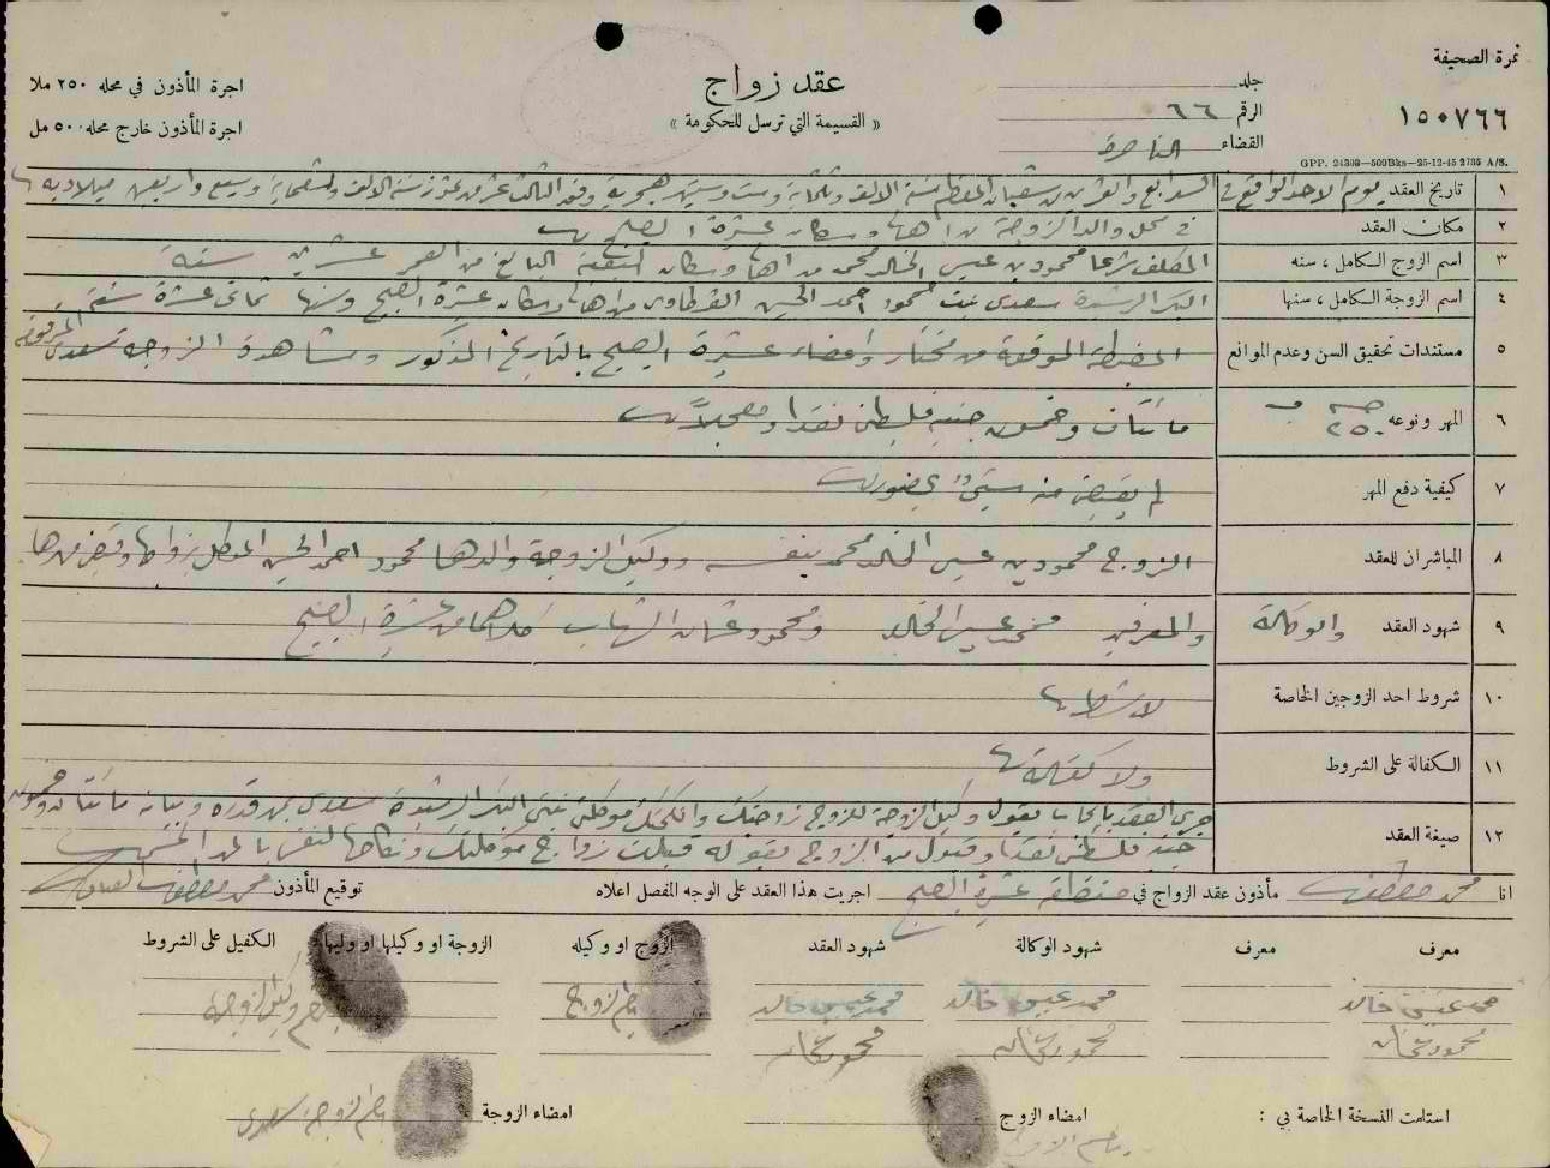 نمرة الصحيفة
١٥٠٧٦٦
جلد
الرقم ٦٦
القضاء الناصرة
عقد زواج
« القسيمة التي ترسل للحكومة »
اجرة المأذون في محله ٢٥٠ ملا
اجرة المأذون خارج محله ٥٠٠ مل
GPP. 24303—500Bks—25-12-45 2735 A/S.
١ تاريخ العقد يوم الاحد الواقع في السابع والعشرين من شعبان المعظم سنة الالف وثلثماية وست وستين هجرية وفي الثالث عشر من تموز سنة الالف وتسعماية وسبع واربعين ميلادية
٢ مكان العقد في محل والد الزوجة من اهالي وسكان عشيرة الصبيح
٣ اسم الزوج الكامل ، سنه المكلف شرعا محمود بن عيسى الخالد محمد من اهالي وسكان البالغ من العمر عشرين سنة
٤ اسم الزوجة الكامل ، سنها البكر الرشيدة سعدى بنت محمود احمد الحسين من اهالي وسكان عشيرة الصبيح وسنها ثماني عشرة سنة
٥ مستندات تحقيق السن وعدم الموانع المضبطة الموقعة من مختار واعضاء عشيرة الصبيح بالتاريخ المذكور ومشاهدة الزوجة سعدى
٦ المهر ونوعه ٢٥٠ مائتان وخمسون جنيه فلسطيني نقدا ومعجلا
٧ كيفية دفع المهر لم يقبض منه شيء بحضوري
٨ المباشران للعقد الزوج محمود بن عيسى الخالد محمد بنفسه ووكيل الزوجة والدها محمود احمد الحسين الموكل بزواجها وقبض مهرها
٩ شهود العقد والوكالة والمعرفين محمد عيسى الخالد ومحمود عثمان الشهاب كلاهما من عشيرة الصبيح
١٠ شروط احد الزوجين الخاصة لا شرط
١١ الكفالة على الشروط ولا كفالة
١٢ صيغة العقد جرى العقد بايجاب بقول وكيل الزوجة للزوج زوجتك وانكحتك موكلتي بنتي البكر الرشيدة سعدى بمهر قدره وبيانه مائتان وخمسون
جنيه فلسطيني نقدا وقبول من الزوج بقوله قبلت زواج موكلتك ونكاحها لنفسي بالمهر
انا محمد مصطفى مأذون عقد الزواج في منطقة عشيرة الصبيح اجريت هذا العقد على الوجه المفصل اعلاه توقيع المأذون محمد مصطفى
معرف معرف شهود الوكالة شهود العقد الزوج او وكيله الزوجة او وكيلها او وليها الكفيل على الشروط
محمد عيسى خالد محمد عيسى خالد محمد عيسى خالد بصم الزوج بصم وكيل الزوجة
محمود عثمان محمود عثمان محمود عثمان
استلمت النسخة الخاصة بي : امضاء الزوج امضاء الزوجة بصم الزوجة سعدى
بصم الزوج